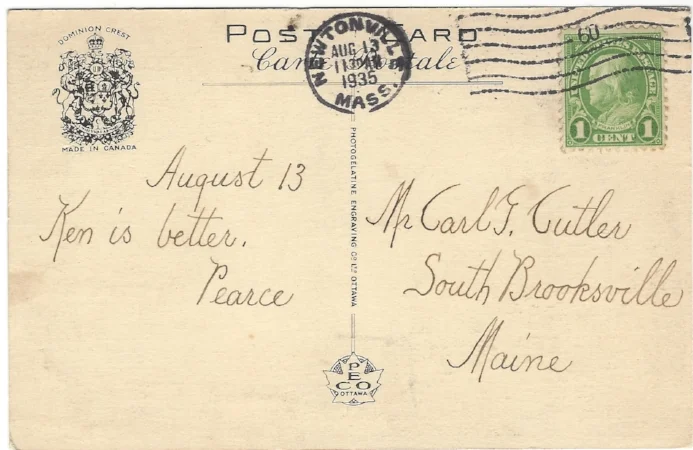 DOMINION CREST
MADE IN CANADA
POST CARD
Carte Postale
NEWTONVILLE
AUG 13
1935
MASS.
60
UNITED STATES POSTAGE
FRANKLIN
1 CENT 1
August 13
Ken is better.
Pearce
PHOTOGELATINE ENGRAVING CO. LTD. OTTAWA
PECO
OTTAWA
Mr Carl G. Cutler
South Brooksville
Maine